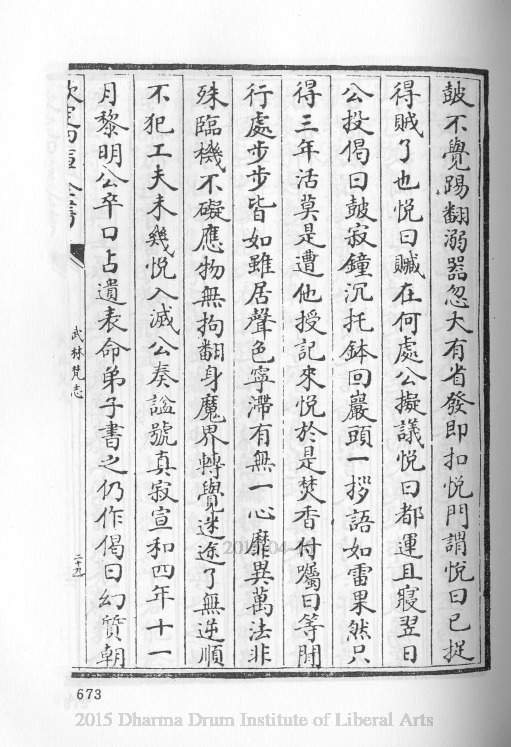 皷不覺踢翻溺器忽大有省發即扣悦門謂悦曰已捉
得賊了也悦曰贓在何處公擬議悦曰都運且寢翌日
公投偈曰皷寂鐘沉托鉢回巖頭一拶語如雷果然只
得三年活莫是遭他授記來悦於是焚香付囑曰等閒
行處步步皆如雖居聲色寧滯有無一心靡異萬法非
殊臨機不礙應物無拘翻身魔界轉覺迷途了無逆順
不犯工夫未幾悦入滅公奏諡號真寂宣和四年十一
月黎明公卒口占遺表命弟子書之仍作偈曰幻質朝
欽定四庫全書
武林梵志
二十九
673
2015 Dharma Drum Institute of Liberal Arts